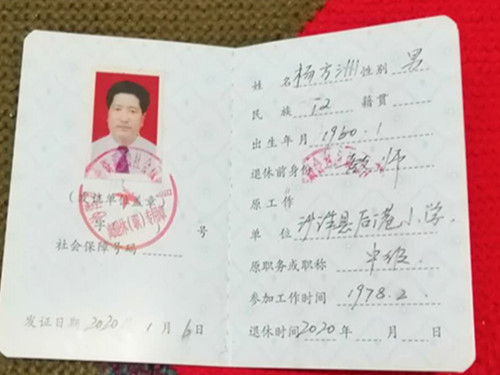 (发填单位盖章)
学
休(职)专用章
号
社会保障号码
发证日期 2020 年 1 月 6 日
姓 名 杨方洲 性别 男
民 族 汉 籍贯
出生年月 1960.1
退休前身份 教师
原工作
单 位 沙洋县后港小学
原职务或职称 中级
参加工作时间 1978.2
退休时间 2020 年 月 日